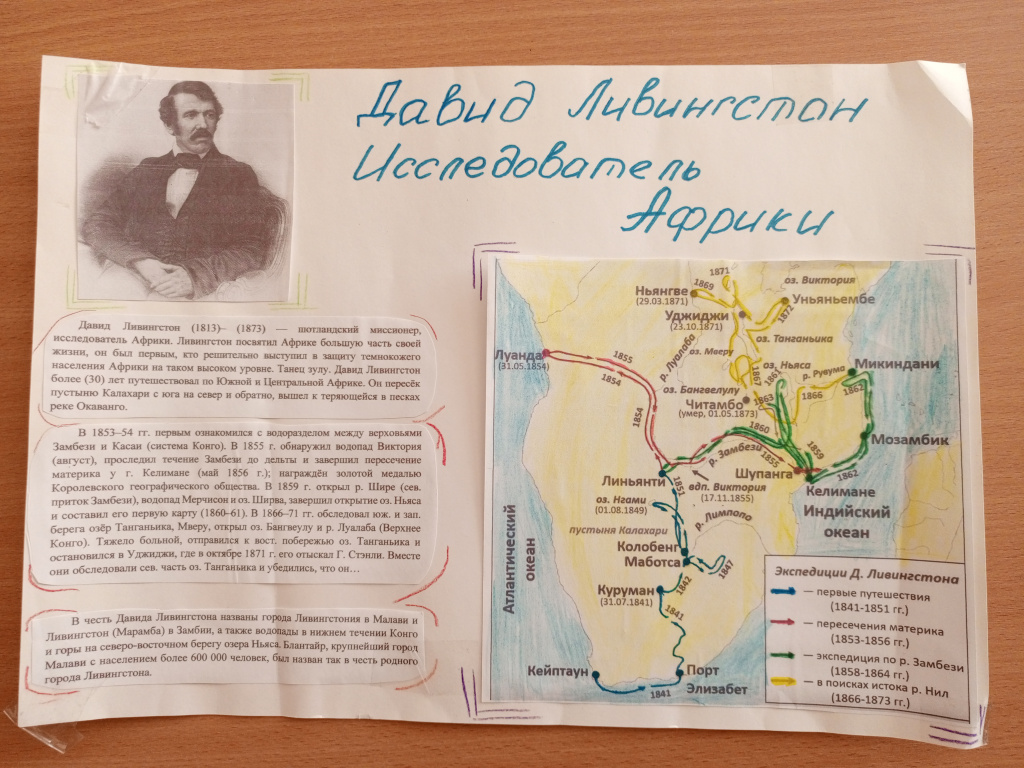 Давид Ливингстон
Исследователь
Африки
Давид Ливингстон (1813)– (1873) — шотландский миссионер,
исследователь Африки. Ливингстон посвятил Африке большую часть своей
жизни, он был первым, кто решительно выступил в защиту темнокожего
населения Африки на таком высоком уровне. Танец зулу. Давид Ливингстон
более (30) лет путешествовал по Южной и Центральной Африке. Он пересёк
пустыню Калахари с юга на север и обратно, вышел к теряющейся в песках
реке Окаванго.
В 1853–54 гг. первым ознакомился с водоразделом между верховьями
Замбези и Касаи (система Конго). В 1855 г. обнаружил водопад Виктория
(август), проследил течение Замбези до дельты и завершил пересечение
материка у г. Келимане (май 1856 г.); награждён золотой медалью
Королевского географического общества. В 1859 г. открыл р. Шире (сев.
приток Замбези), водопад Мерчисон и оз. Ширва, завершил открытие оз. Ньяса
и составил его первую карту (1860–61). В 1866–71 гг. обследовал юж. и зап.
берега озёр Танганьика, Мверу, открыл оз. Бангвеулу и р. Луалаба (Верхнее
Конго). Тяжело больной, отправился к вост. побережью оз. Танганьика и
остановился в Уджиджи, где в октябре 1871 г. его отыскал Г. Стэнли. Вместе
они обследовали сев. часть оз. Танганьика и убедились, что он…
В честь Давида Ливингстона названы города Ливингстония в Малави и
Ливингстон (Марамба) в Замбии, а также водопады в нижнем течении Конго
и горы на северо-восточном берегу озера Ньяса. Блантайр, крупнейший город
Малави с населением более 600 000 человек, был назван так в честь родного
города Ливингстона.
1871
оз. Виктория
Ньянгве
1869
(29.03.1871)
Уньяньембе
1872
Уджиджи
(23.10.1871)
оз. Танганьика
р. Луалаба
оз. Мверу
Луанда
(31.05.1854)
1855
1854
1854
оз. Ньяса
Микиндани
1867
1861
р. Рувума
оз. Бангвеулу
1863
1866
1862
Читамбо
(умер, 01.05.1873)
1860
р. Замбези
1855
1859
Мозамбик
Шупанга
1862
Линьянти
1851
вдп. Виктория
(17.11.1855)
Келимане
оз. Нгами
(01.08.1849)
р. Лимпопо
Индийский
океан
Атлантический
океан
пустыня Калахари
Колобенг
Маботса
1847
1842
Куруман
(31.07.1841)
1841
Кейптаун
Порт
Элизабет
1841
Экспедиции Д. Ливингстона
— первые путешествия
(1841-1851 гг.)
— пересечения материка
(1853-1856 гг.)
— экспедиция по р. Замбези
(1858-1864 гг.)
— в поисках истока р. Нил
(1866-1873 гг.)